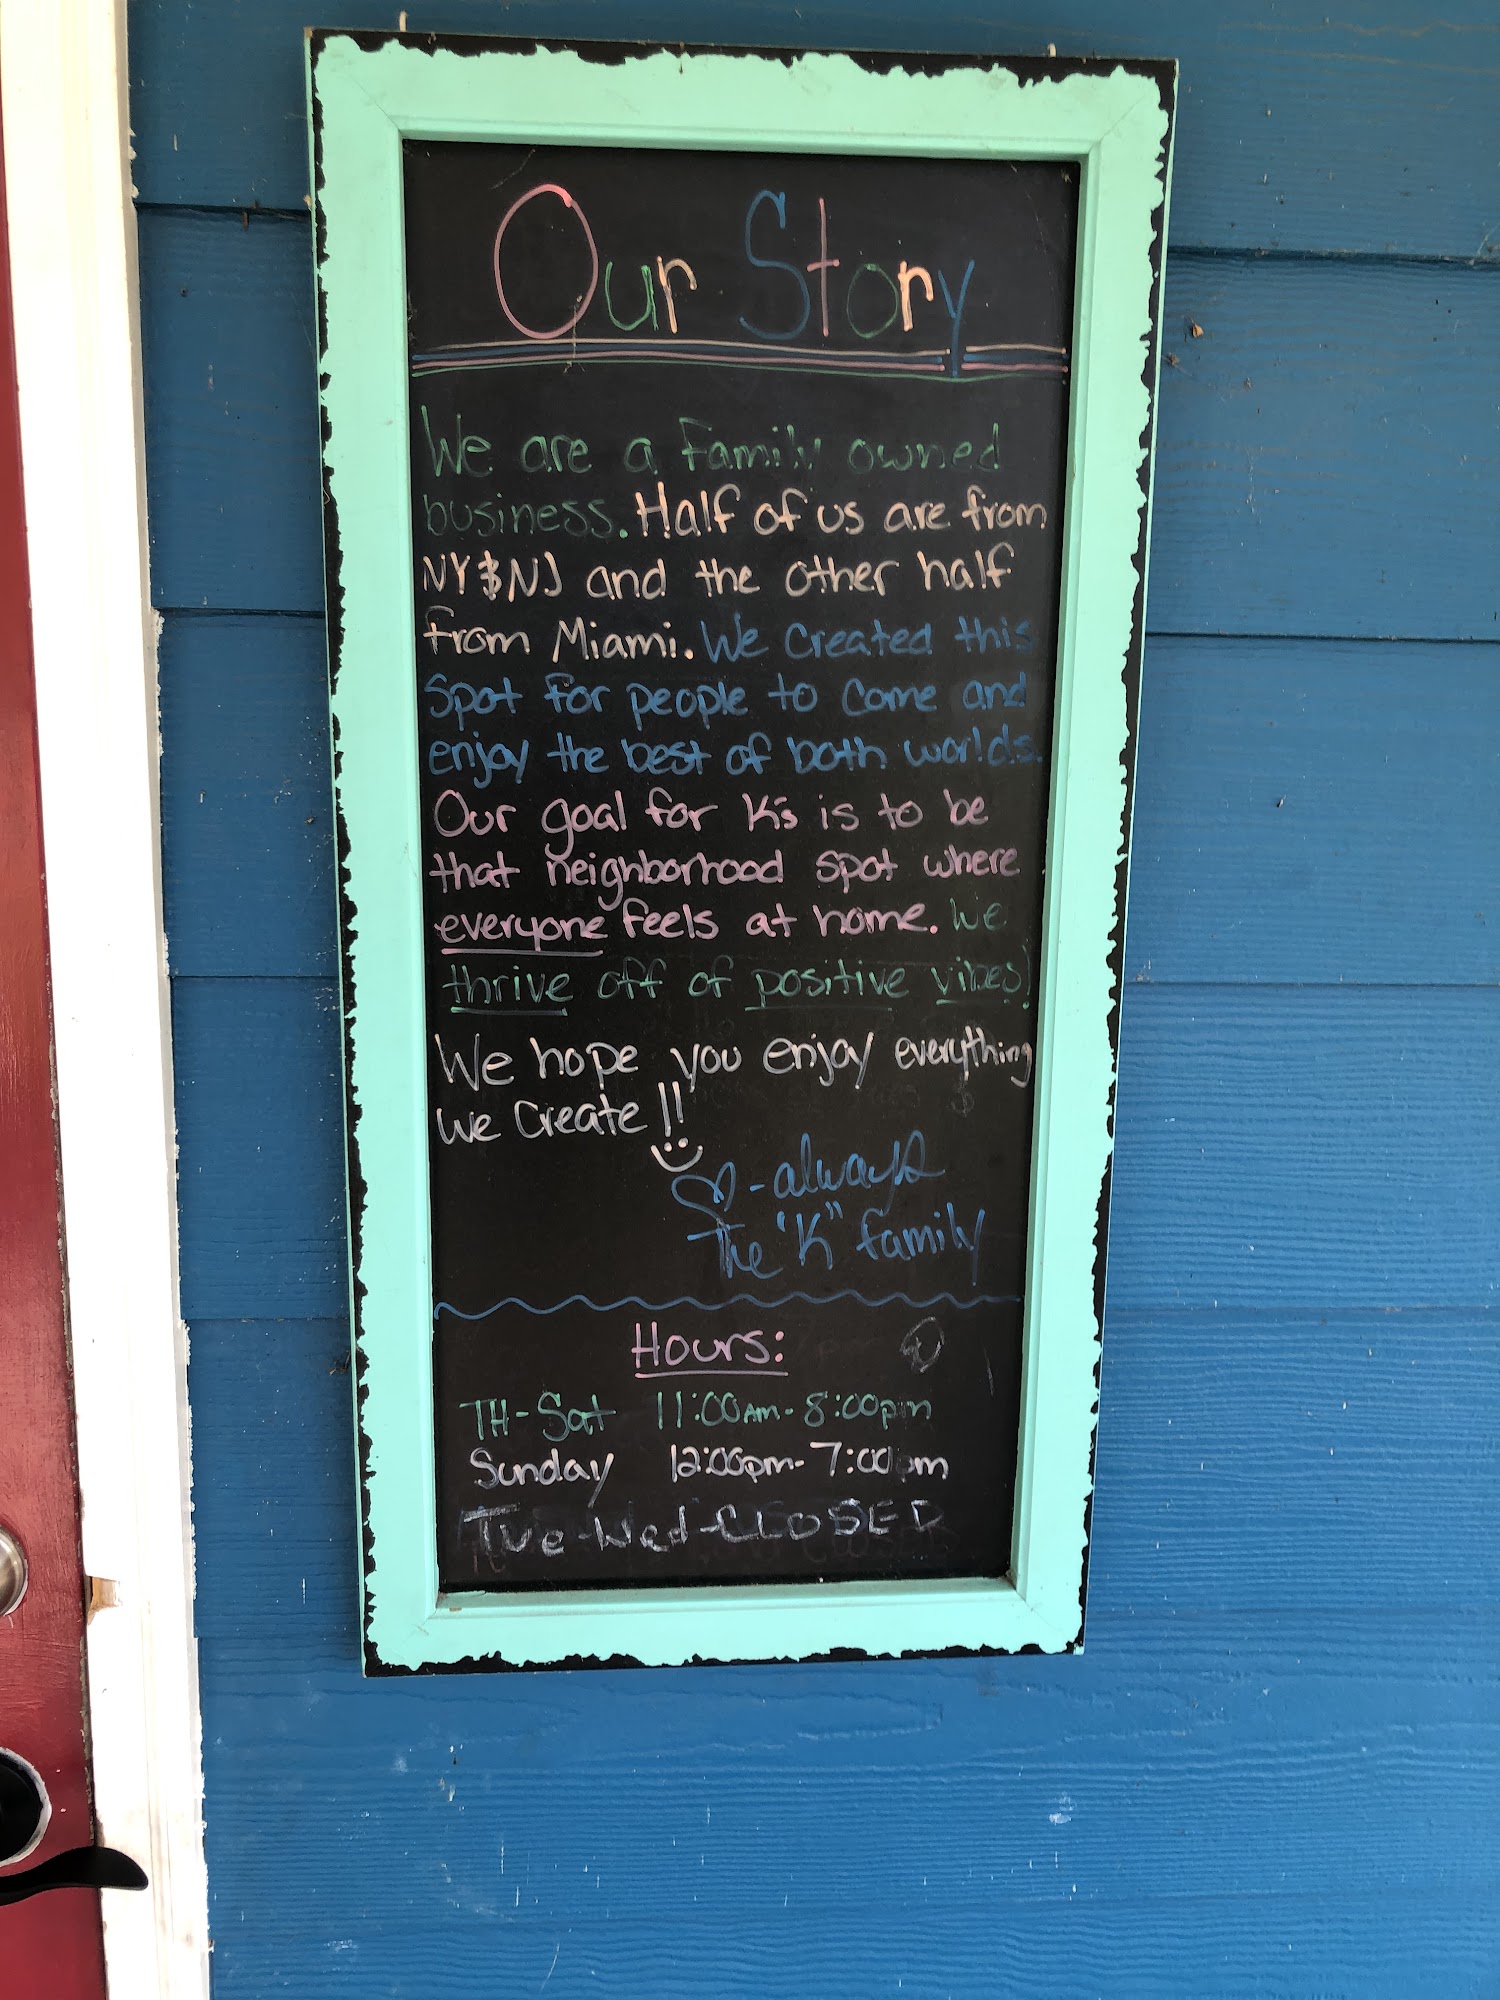 Our Story
We are a Family owned
business. Half of us are from
NY & NJ and the other half
from Miami. We Created this
Spot for people to Come and
enjoy the best of both worlds.
Our goal for K's is to be
that neighborhood spot where
everyone feels at home. We
thrive off of positive vibes!
We hope you enjoy everything
we create!!
♡-always
The "K" family
Hours:
TH-Sat 11:00AM-8:00pm
Sunday 12:00pm-7:00pm
Tue-Wed-CLOSED